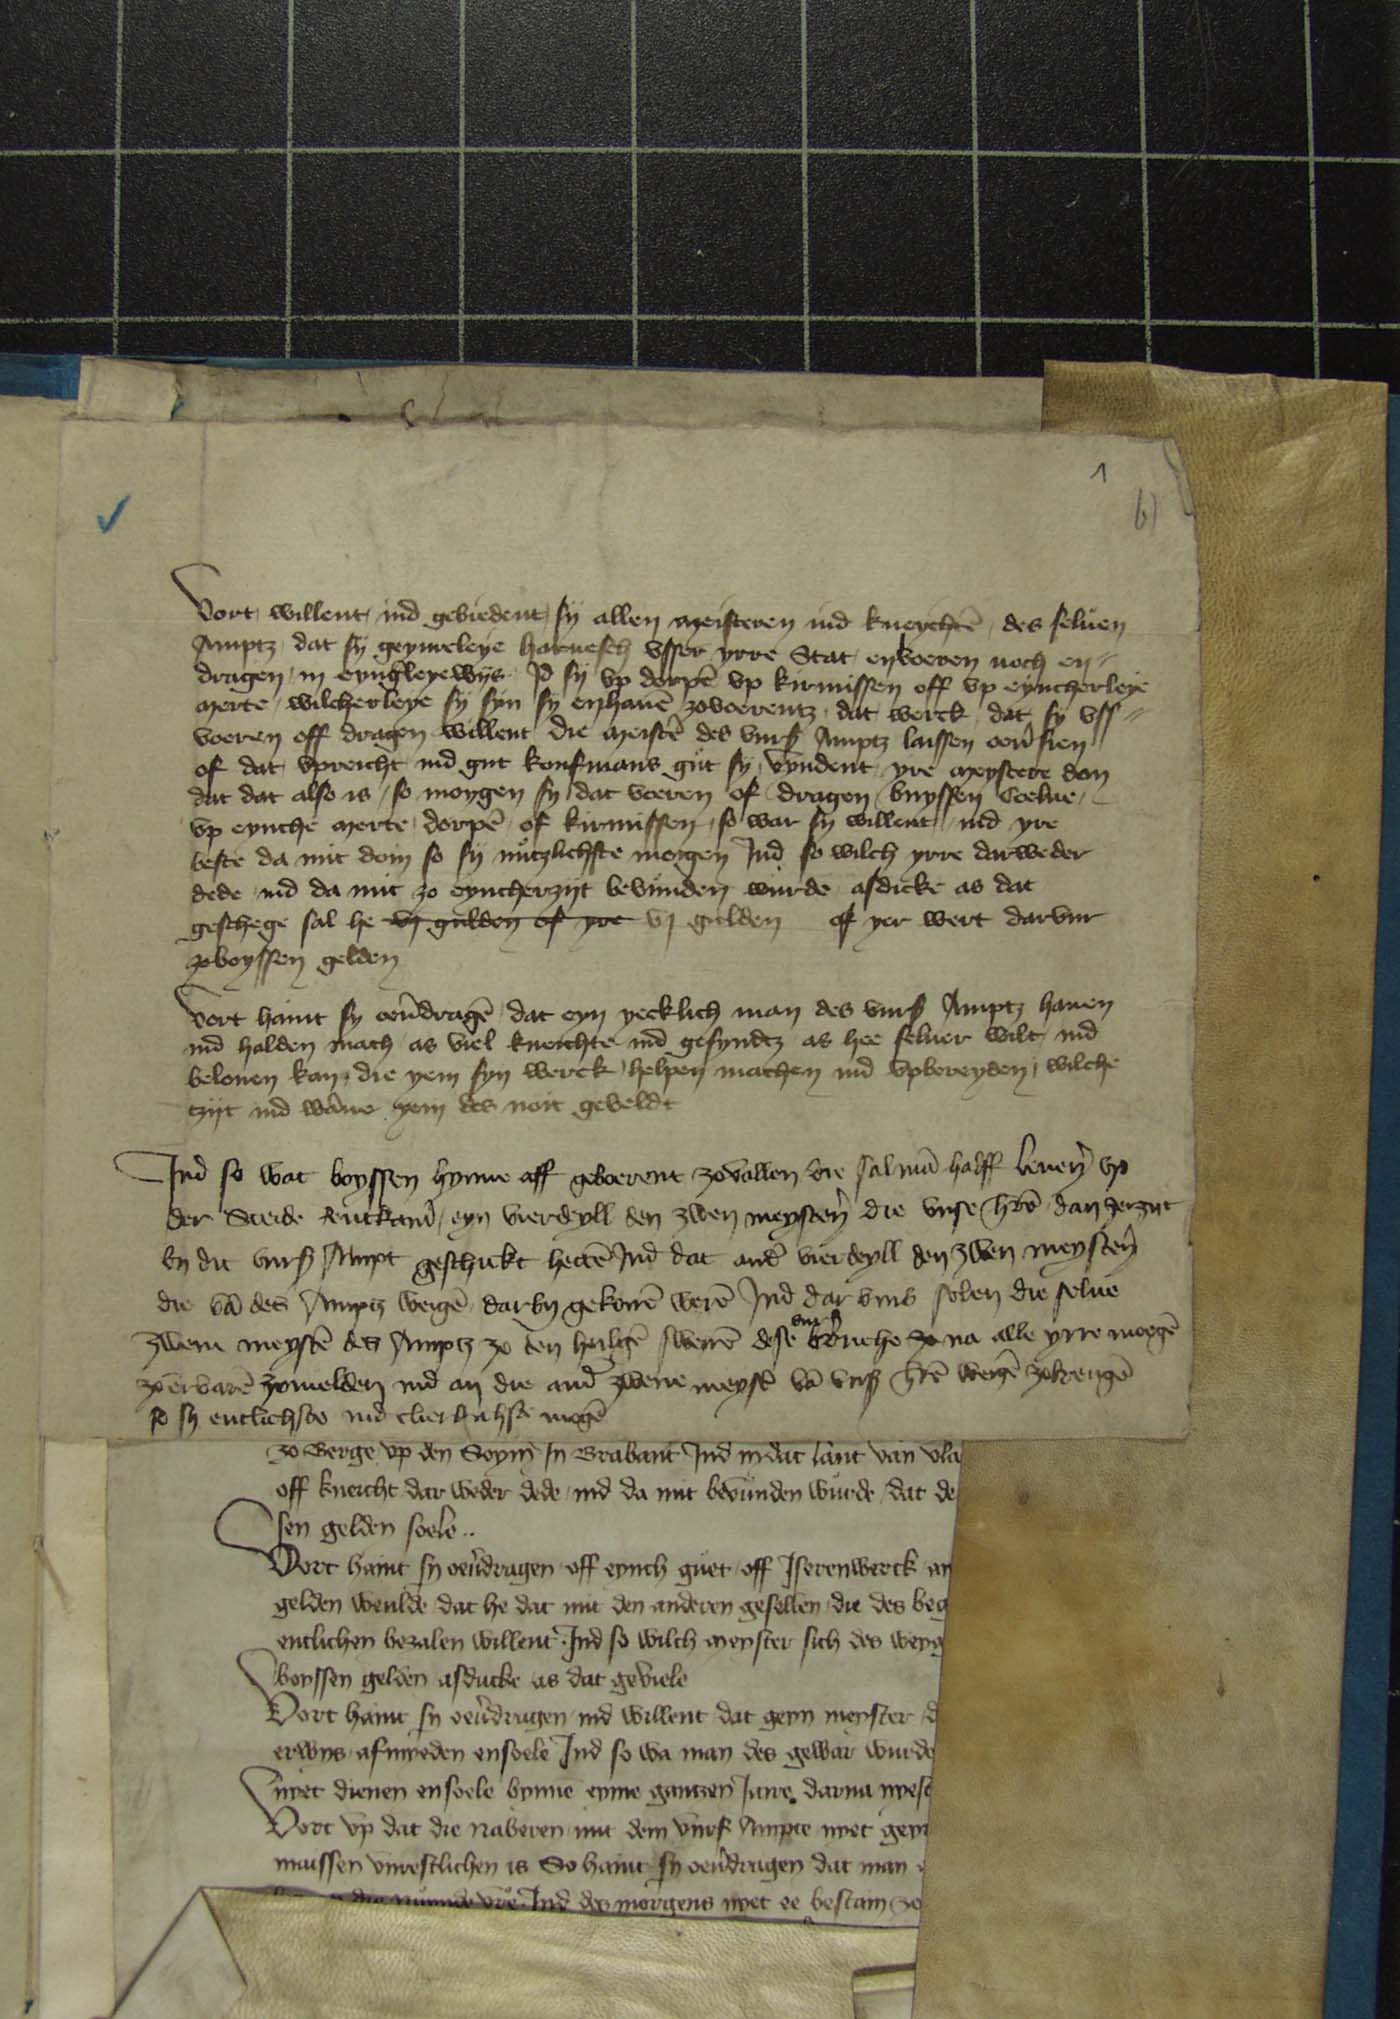 1
b)
Vort willent ind gebiedent sij allen meisteren ind kneychtē des seluen
Amptz dat sij geynreleye harnesch vsser yrre Stat envoeren noch en〃
dragen in eyngleyewijs Id sij vp dorpē vp kirmissen off vp eyncherleye
merte wilcherleye sij syn sij enhauē zovoerentz dat werck dat sij vss〃
voeren off dragen willent die meistē des vurß Amptz laissen oeu̅sien
of dat vpreicht ind gut koufmans gut sij vyndent yre meystere dan
dat dat also is so moygen sij dat voeren of dragen buyssen Coelne
vp eynche merte dorpē of kirmissen so war sij willent ind yre
beste da mit doin so sij nützlichste moegen Ind so wilch yrre darweder
dede ind da mit zo eyncherzijt bevunden wurde asdicke as dat
geschege sal he vj gulden of yre vj gulden of yer wert darvur
zoboyssen gelden
Vort haint sy oeu̅dragē dat eyn yecklich man des vurß Amptz hauen
ind halden mach as viel kneichte ind gesyndtz as hee seluer wilt ind
belonen kan die yem syn werck helpen machen ind vpbereyden wilche
tzijt ind wanne yem des noit geveldt
Ind so wat boyssen hynne aff geboerent zovallen die sal mā halff leuerē vp
der Steide Rentkamē eyn vierdeyll den zwen meysterē die vnse hrē dan zerzijt
by dit vurß Ampt geschickt hettē Ind dat andē vierdeyll den zwen meysterē
die vā des Amptz weigē darby gekoirē werē Ind dar vmb solen die selue
zwene meystē des Amptz zo den heilgē swerē dese vurß broeche zo na alle yrre moegē
zoervarē zomelden ind an die andē zwene meystē vā vnsß hrē weigē zobrengē
so sij entlichste ind clierlichste mogē
zo Berge vp den Soym In Brabant Ind in dat lant van vla
off kneicht dar weder dede ind da mit bevunden wurde dat de
sen gelden soele..
Vort haint sy oeu̅dragen off eynch guet off Iserenwerck an
gelden weulde dat he dat mit den anderen gesellen die des beg
entlichen bezalen willent Ind so wilch meyster sich des weyg
boyssen gelden asducke as dat geviele
Vort haint sy oeu̅dragen ind willent dat geyn meyster d
erwys afmyeden ensoele Ind so wa man des gewar wurde
nyet dienen ensoele bynne eyme gantzen Jare darna nyest
Vort vp dat die naberen mit dem vurß Ampte nyet geyn
maissen vnrestlichen is So haint sy oeu̅dragen dat man
die nuynde vre Ind des morgens nyet ee bestain zo